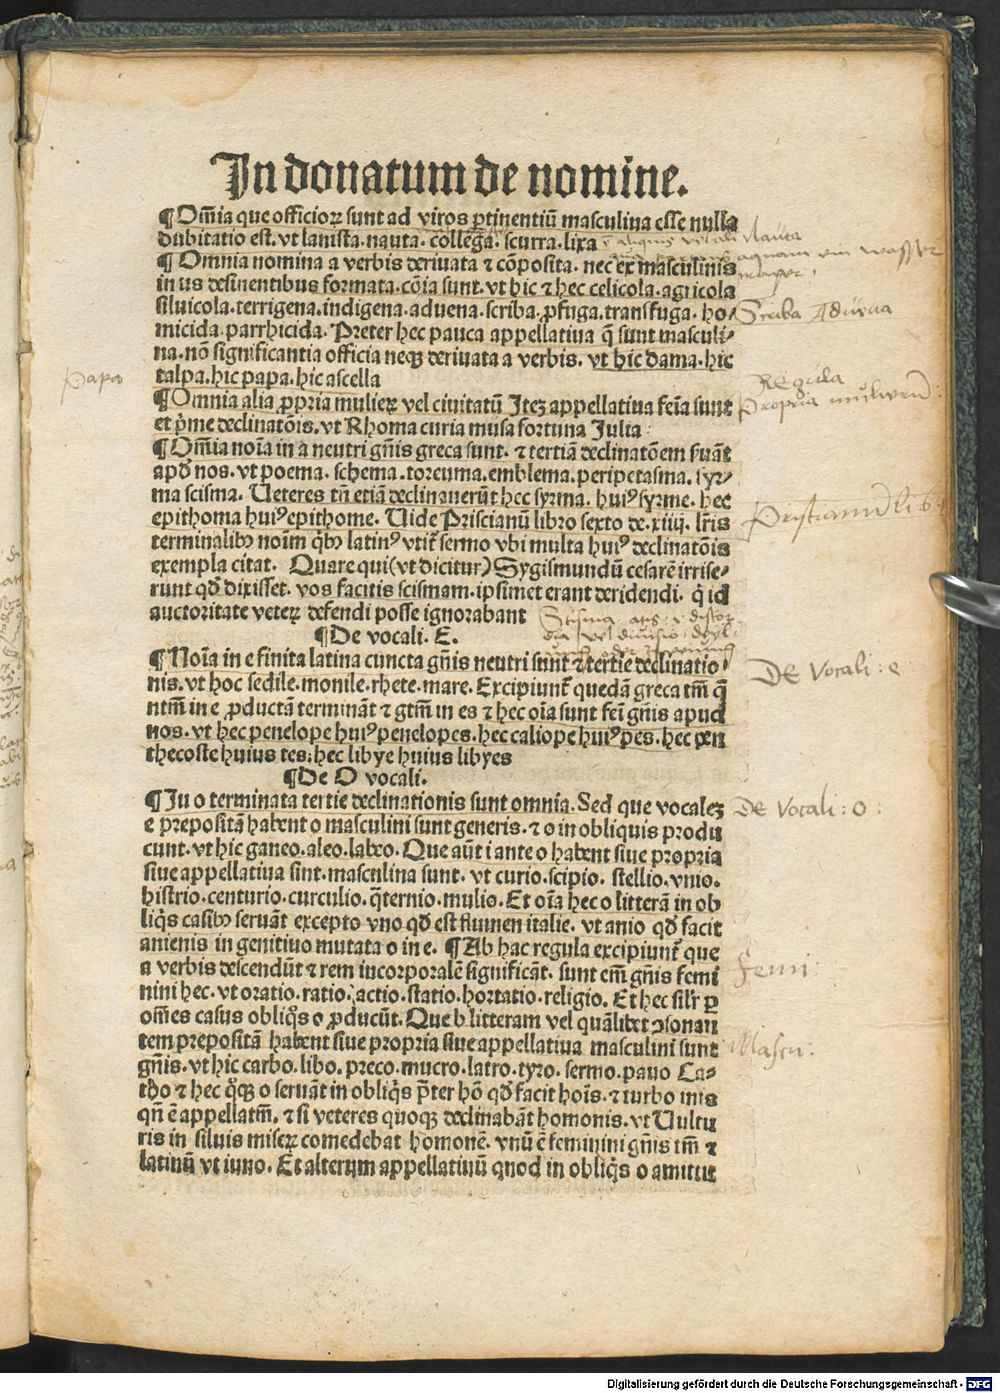 In donatum de nomine.
¶ Om̃ia que officioꝝ sunt ad viros ꝑtinentiũ masculina esse nulla
dubitatio est. vt lanista. nauta. collega. scurra. lixa
Nauta
¶ Omnia nomina a verbis deriuata ⁊ cõposita. nec ex masculinis
in us desinentibus formata. cõia sunt. vt hic ⁊ hec celicola. agricola
siluicola. terrigena. indigena. aduena. scriba. ꝓfuga. transfuga. ho⸗
Scriba Aduena
micida. parrhicida. Preter hec pauca appellatiua q̃ sunt masculi⸗
na. nõ significantia officia neqꝫ deriuata a verbis. vt hic dama. hic
talpa. hic papa. hic ascella
Papa
Regula
¶ Omnia alia ꝓpria mulieꝝ vel ciuitatũ Iteꝫ appellatiua feĩa sunt
Propria mulierũ:
et p̃me declinatõis. vt Rhoma curia musa fortuna Julia
¶ Om̃ia noĩa in a neutri gñis greca sunt. ⁊ tertiã declinatõem ẜuãt
apð nos. vt poema. schema. toreuma. emblema. peripetasma. syr⸗
ma scisma. Ueteres tñ etiã declinauerũt hec syrma. huiꝰ syrme. hec
epithoma huiꝰ epithome. Uide Priscianũ libro sexto de. xiiij. lr̃is
terminalibꝫ noĩm q̃bꝫ latinꝰ vtit̃ sermo vbi multa huiꝰ declinatõis
exempla citat. Quare qui (vt dicitur) Sygismundũ cesarẽ irrise⸗
runt qð dixisset. vos facitis scismam. ipsimet erant deridendi. q̃ id
auctoritate veteꝝ defendi posse ignorabant
¶ De vocali. E.
¶ Noĩa in e finita latina cuncta gñis neutri sunt ⁊ tertie declinatio⸗
De Vocali: e
nis. vt hoc sedile. monile. rhete. mare. Excipiunt̃ quedã greca tm̃ q̃
ntm̃ in e ꝓductã terminãt ⁊ gtm̃ in es ⁊ hec oĩa sunt feĩ gñis apud
nos. vt hec penelope huiꝰ penelopes. hec caliope huiꝰ pes. hec pen
thecoste huius tes: hec libye huius libyes
¶ De O vocali.
¶ In o terminata tertie declinationis sunt omnia. Sed que vocaleꝫ
De Vocali: o:
e prepositã habent o masculini sunt generis. ⁊ o in obliquis produ
cunt. vt hic ganeo. aleo. labeo. Que aũt i ante o habent siue propria
siue appellatiua sint. masculina sunt. vt curio. scipio. stellio. vnio.
histrio. centurio. curculio. q̃ternio. mulio. Et oĩa hec o litterã in ob
liq̃s casibꝫ seruãt excepto vno qð est flumen italie. vt anio qð facit
anienis in genitiuo mutata o in e. ¶ Ab hac regula excipiunt̃ que
a verbis descendũt ⁊ rem incorporalẽ significãt. sunt em̃ gñis femi
Femi
nini hec. vt oratio. ratio. actio. statio. hortatio. religio. Et hec silr̃ ꝑ
om̃es casus obliq̃s o ꝓducũt. Que b litteram vel quãlibet ↄsonan
tem prepositã habent siue propria siue appellatiua masculini sunt
Mascu:
gñis. vt hic carbo. libo. preco. mucro. latro. tyro. sermo. pauo Ca⸗
tho ⁊ hec q̃qꝫ o seruãt in obliq̃s p̃ter hõ qð facit hoĩs. ⁊ turbo inis
qñ ẽ appellatm̃. ⁊ si veteres quoqꝫ declinabãt homonis. vt Uultu
ris in siluis miseꝝ comedebat homonẽ. vnũ ẽ feminini gñis tm̃ ⁊
latinũ vt iuno. Et alterum appellatiuũ quod in obliq̃s o amittit
Digitalisierung gefördert durch die Deutsche Forschungsgemeinschaft - DFG